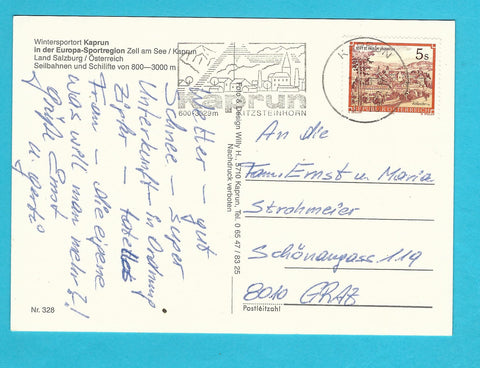 Wintersportort Kaprun
in der Europa-Sportregion Zell am See / Kaprun
Land Salzburg / Österreich
Seilbahnen und Schilifte von 800—3000 m
Kaprun
600-3029m KITZSTEINHORN
KAPRUN
5s
REPUBLIK ÖSTERREICH
Her – gut
Schnee – super
Unterkunft – in Ordnung
die eigene
Frau –
was will man mehr?!
Grüße Ernst
u.
Foto & Design Willy H. 5710 Kaprun, Tel. 0 65 47 / 83 25
Nachdruck verboten
An die
Fam. Ernst u. Maria
Strohmeier
Schönaugasse 119
8010 GRAZ
Postleitzahl
Nr. 328